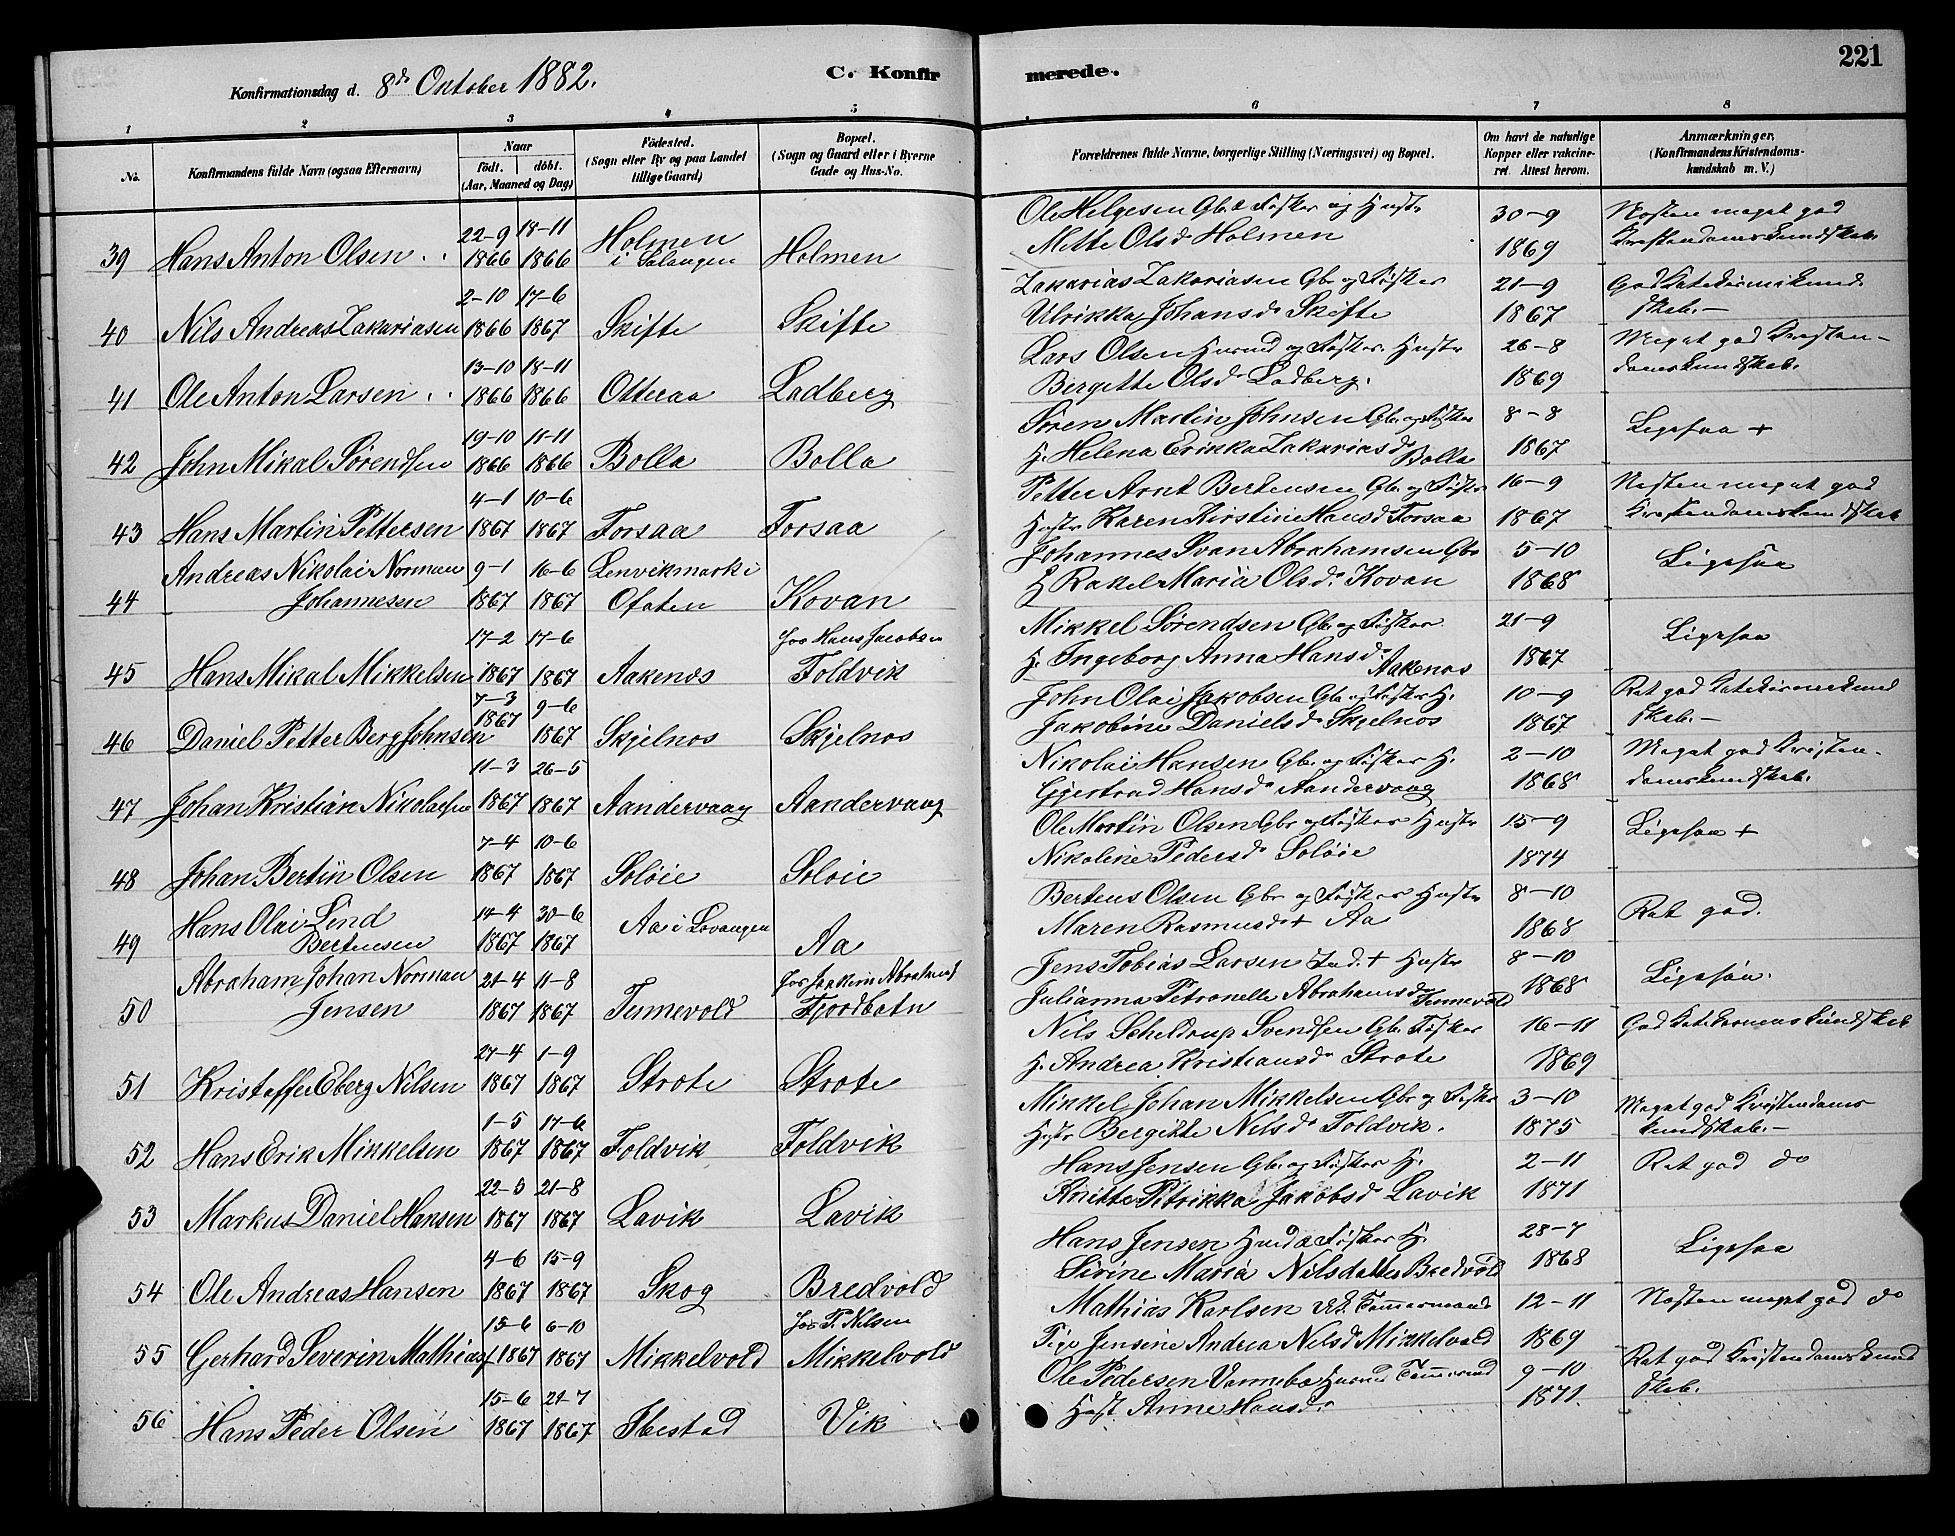 221
Konfirmationsdag d. 8de October 1882.
C. Konfirmerede.
1 2 3 4 5 6 7 8
No.
Konfirmandens fulde Navn (ogsaa Efternavn)
Naar
födt. döbt.
(Aar, Maaned og Dag)
Födested.
(Sogn eller By og paa Landet
tillige Gaard)
Bopæl.
(Sogn og Gaard eller i Byerne
Gade og Hus-No.
Forældrenes fulde Navne, borgerlige Stilling (Næringsvei) og Bopæl.
Om havt de naturlige
Kopper eller vakcineret.
Attest herom.
Anmærkninger,
(Konfirmandens Kristendomskundskab
m. V.)
39 Hans Anton Olsen 22-9 1866 18-11 1866 Holmen i Salangen Holmen
Ole Helgesen Gbr. Fisker og Hustr
Mette Olsd Holmen 30-9 1869 Næsten meget god Kristendomskundskab
40 Nils Andreas Zakariasen 2-10 1866 17-6 1867 Skifte Skifte
Zakarias Zakariasen Gbr. og Fisker
Ulrikka Johansd Skifte 21-9 1867 God Katekismikundskab.-
41 Ole Anton Larsen 13-10 1866 18-11 1866 Otteraa Ladberg
Lars Olsen Husmd og Fisker. Hustr
Bergitte Olsd Ladberg. 26-8 1869 Meget god Kristendomskundskab.
42 John Mikal Sørendsen 19-10 1866 11-11 1866 Bolla Bolla
Søren Martin Johnsen Gbr. og Fisker
H. Helena Erikka Zakariasd Bolla 8-8 1867 Ligesaa +
43 Hans Martin Pettersen 4-1 1867 10-6 1867 Forsaa Forsaa
Petter Arnt Bertensen Gbr. og Fisker
Hustr Karen Kirstine Hansd Forsaa 16-9 1867 Næsten meget god Kristendomskundskab
44 Andreas Nikolai Norman Johannesen 9-1 1867 16-6 1867 Lenvikmark i Ofoten Kovan
Johannes Svan Abrahamsen Gbr
H Rakel Maria Olsd. Kovan 5-10 1868 Ligesaa
45 Hans Mikal Mikkelsen 17-2 1867 17-6 1867 Aakenæs hos Hans Jacobsen Foldvik
Mikkel Sørendsen Gbr. og Fisker
H. Ingeborg Anna Hansd Aakenæs 21-9 1867 Ligesaa
46 Daniel Petter Berg Johnsen 7-3 1867 9-6 1867 Skjelnæs Skjelnæs
John Olai Jakobsen Gbr. og Fisker H.
Jakobine Danielsd Skjelnæs 10-9 1867 Ret god Katekismekundskab.-
47 Johan Kristian Nikolaisen 11-3 1867 26-5 1867 Aandervaag Aandervaag
Nikolai Hansen Gbr. og Fisker H.
Gjertrud Hansd Aandervaag 2-10 1868 Meget god Kristendomskundskab.
48 Johan Bertin Olsen 7-4 1867 10-6 1867 Soløie Soløie
Ole Martin Olsen Gbr og Fisker Hustr
Nikoline Pedersd. Soløie 15-9 1874 Ligesaa +
49 Hans Olai Lind Bertensen 14-4 1867 30-6 1867 Aa i Lavangen Aa
Bertens Olsen Gbr og Fisker Hustr
Maren Rasmusd + Aa 8-10 1868 Ret god.
50 Abraham Johan Norman Jensen 21-4 1867 11-8 1867 Tennevold hos Joakim Abrahams Fjordbotn
Jens Tobias Larsen Ind. + Hustr
Julianna Petronelle Abrahamsd Tennevold 8-10 1868 Ligesaa.
51 Kristoffer Eberg Nilsen 27-4 1867 1-9 1867 Strøte Strøte
Nils Scheldrup Svendsen Gbr. Fisker
H. Andrea Kristiansd Strøte 16-11 1869 God Katekismeskundskab
52 Hans Erik Mikkelsen 1-5 1867 17-6 1867 Foldvik Foldvik
Mikkel Johan Mikkelsen Gbr og Fisker
Hustr Bergitte Nilsd Foldvik. 3-10 1875 Meget god Kristendomskundskab.-
53 Markus Daniel Hansen 22-5 1867 21-8 1867 Lavik Lavik
Hans Jensen Gbr. og Fisker H.
Anitte Petrikka Jakobsd Lavik 2-11 1871 Ret god do
54 Ole Andreas Hansen 4-6 1867 15-9 1867 Skog Bredvold
Hans Jensen Husmd & Fisker H.
Sirine Maria Nilsdatter Bredvold 28-7 1868 Ligesaa
55 Gerhard Severin Mathiasf 15-6 1867 6-10 1867 Mikkelvold hos P. Nilsen Mikkelvold
Mathias Karlsen Tømmermand
Pige Jensine Andrea Nilsd Mikkelvold 12-11 1869 Næsten meget god do
56 Hans Peder Olsen 15-6 1867 21-7 1867 Ibestad Vik
Ole Pedersen Vannebo Husmd Tømmermd
Hust Anne Hansd. 9-10 1871. Ret god Kristendomskundskab.